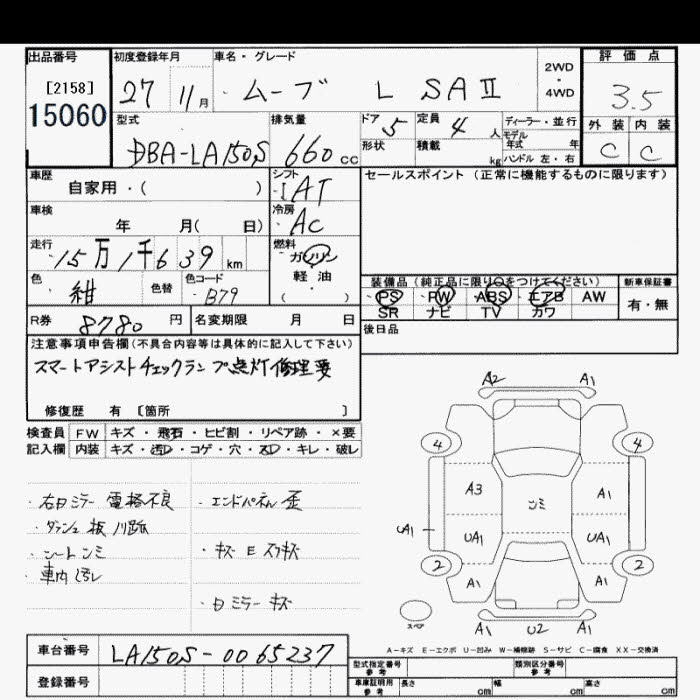 出品番号
[2158]
15060
初度登録年月
27 11月
車名・グレード
ムーブ L SAⅡ
2WD
・
4WD
評価点
3.5
外装 内装
C C
型式
DBA-LA150S
排気量
660 CC
ドア 5
形状
定員 4 人
積載 kg
ディーラー・並行
モデル
年式 年
ハンドル 左・右
車歴
自家用・( )
シフト
IAT
車検
年 月( 日)
冷房
AC
走行
15万1千639km
燃料
ガソリン
軽・油
( )
色
紺
色替
色コード
B79
R券 8780 円
名変期限 月 日
セールスポイント(正常に機能するものに限ります)
装備品(純正品に限り○をつけてください)
PS PW ABS エアB AW
SR ナビ TV カワ
新車保証書
有・無
後日品
注意事項申告欄(不具合内容等は具体的に記入して下さい)
スマートアシストチェックランプ点灯修理要
修復歴 有 [箇所 ]
検査員 FW キズ・飛石・ヒビ割・リペア跡・×要
記入欄 内装 キズ・汚レ・コゲ・穴・スレ・キレ・破レ
・右Dミラー 電格不良
・エンドパネル 歪
・シートシミ
・キズ E スリキズ
・車内汚レ
・Dミラー キズ
A2 A1
4 4
A3 シミ A1
UA1 UA1 UA1
2 2
A1 A1
スペア
A1 U2 A1
A-キズ E-エクボ U-凹み W-補修跡 S-サビ C-腐食 XX-交換済
車台番号 LA150S-0065237
登録番号
型式指定番号
参考
類別区分番号
参考
車庫証明用
参考
長さ cm 幅 cm 高さ cm